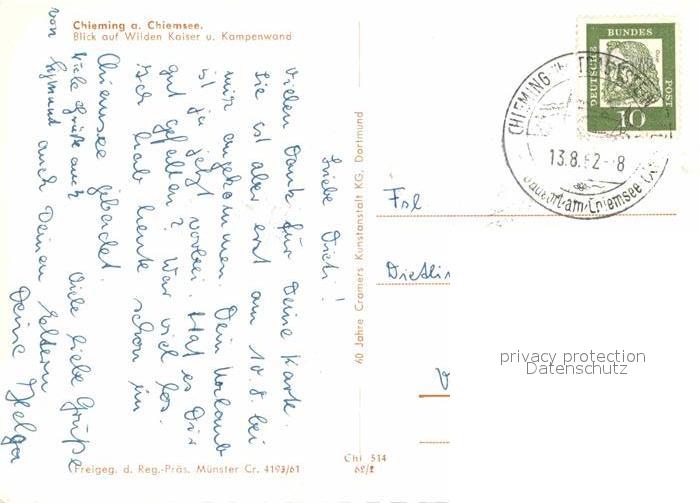 Chieming a. Chiemsee.
Blick auf Wilden Kaiser u. Kampenwand
Liebe Dieti!
Vielen Dank für Deine Karte.
Sie ist aber erst am 10.8. bei
mir angekommen. Dein Urlaub
ist ja jetzt vorbei. Hat es Dir
gut gefallen? War viel los.
Ich hab heute schon im
Chiemsee gebadet.
Viele liebe Grüße
Viele Grüße auch
von Sigmund auch Deinen Eltern
Deine Helga
Freigeg. d. Reg.-Präs. Münster Cr. 4193/61
40 Jahre Cramers Kunstanstalt KG, Dortmund
Chi 514
62/2
DEUTSCHE BUNDESPOST
10
CHIEMING
13.8.62-8
am Chiemsee
Frl
privacy protection
Datenschutz